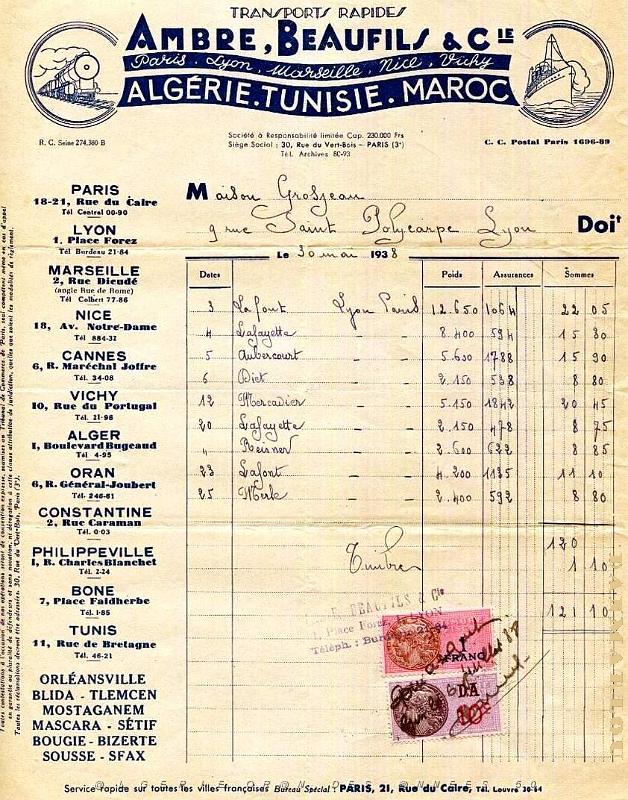 TRANSPORTS RAPIDES
AMBRE, BEAUFILS & CIE
Paris, Lyon, Marseille, Nice, Vichy
ALGÉRIE. TUNISIE. MAROC
R. C. Seine 274.380 B
Société à Responsabilité limitée Cap. 230.000 Frs
Siège Social : 30, Rue du Vert-Bois - PARIS (3e)
Tél. Archives 80-93
C. C. Postal Paris 1696-89
PARIS
18-21, Rue du Caire
Tél Central 00-90
LYON
1, Place Forez
Tél Burdeau 21-84
MARSEILLE
2, Rue Dieudé
(angle Rue de Rome)
Tél Colbert 77-86
NICE
18, Av. Notre-Dame
Tél 884-32
CANNES
6, R. Maréchal Joffre
Tél. 34-08
VICHY
10, Rue du Portugal
Tél. 21-96
ALGER
1, Boulevard Bugeaud
Tél 4-95
ORAN
6, R. Général-Joubert
Tél. 246-61
CONSTANTINE
2, Rue Caraman
Tél. 0-03
PHILIPPEVILLE
1, R. Charles Blanchet
Tél. 2-24
BONE
7, Place Faidherbe
Tél. 1-85
TUNIS
11, Rue de Bretagne
Tél. 46-21
ORLÉANSVILLE
BLIDA - TLEMCEN
MOSTAGANEM
MASCARA - SÉTIF
BOUGIE - BIZERTE
SOUSSE - SFAX
Maison Grosjean
9 rue Saint Polycarpe Lyon Doit
Le 30 mai 1938
Dates Poids Assurances Sommes
3 Lafont Lyon Paris 12.650 1064 22 05
4 Lafayette - - 8.400 594 15 80
5 Aubercourt - - 5.600 1788 15 90
6 Biet - - 2.150 538 8 80
12 Mercadier - - 5.150 1842 20 45
20 Lafayette - - 2.150 478 8 75
" Reisner - - 2.600 622 8 85
23 Lafont - - 4.200 1135 11 10
25 Merle - - 2.400 592 8 80
120
Timbre 1 10
121 10
BEAUFILS & Cie
1, Place Forez, LYON
Téléph : Burdeau 21-84
1
FRANC
DA
Service rapide sur toutes les villes françaises Bureau Spécial : PARIS, 21, Rue du Caire, Tél. Louvre 30-64